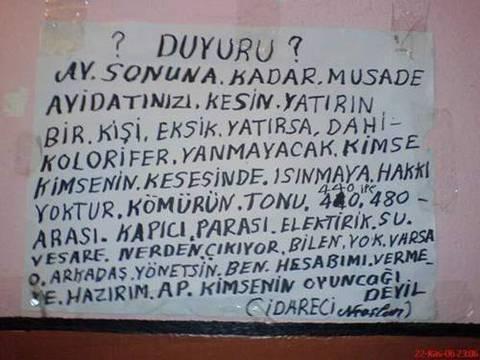 ? DUYURU ?
AY. SONUNA. KADAR. MUSADE
AYIDATINIZI. KESİN. YATIRIN
BİR. KİŞİ, EKSİK. YATIRSA, DAHİ-
KOLORİFER. YANMAYACAK. KİMSE
KİMSENİN. KESESİNDE. ISINMAYA. HAKKI
YOKTUR. KÖMÜRÜN. TONU. 440 İLE 480-
ARASI. KAPICI. PARASI. ELEKTİRİK. SU.
VESARE. NERDEN. ÇIKIYOR. BİLEN. YOK. VARSA
O. ARKADAŞ. YÖNETSİN. BEN. HESABIMI. VERME-
E. HAZIRIM. AP. KİMSENİN OYUNCAĞI
DEYİL
(İDARECİ )
22-Kas-06 23:06